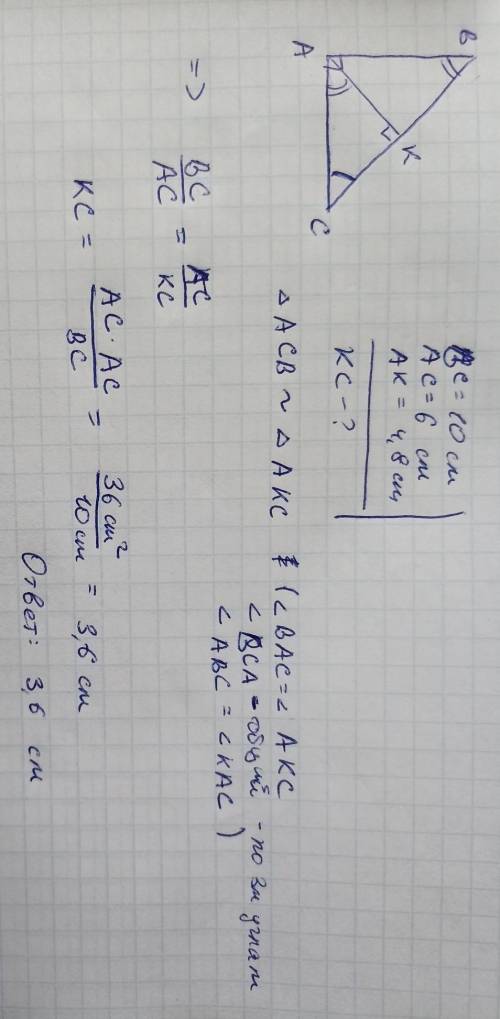 A
B
K
C
BC = 10 см
AC = 6 см
AK = 4,8 см
KC - ?
△ ACB ~ △ AKC (∠BAC = ∠AKC
∠BCA - общий - по 3м углам
∠ABC = ∠KAC)
=> BC/AC = AC/KC
KC = AC · AC / BC = 36 см² / 10 см = 3,6 см
Ответ: 3,6 см